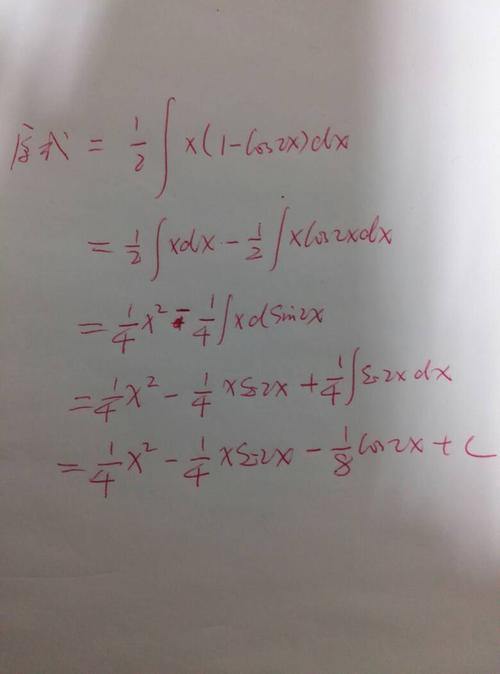 原式 = 1/2 ∫ x(1-cos2x)dx
= 1/2 ∫ xdx - 1/2 ∫ xcos2xdx
= 1/4 x² - 1/4 ∫ xdsin2x
= 1/4 x² - 1/4 xsin2x + 1/4 ∫ sin2xdx
= 1/4 x² - 1/4 xsin2x - 1/8 cos2x + C